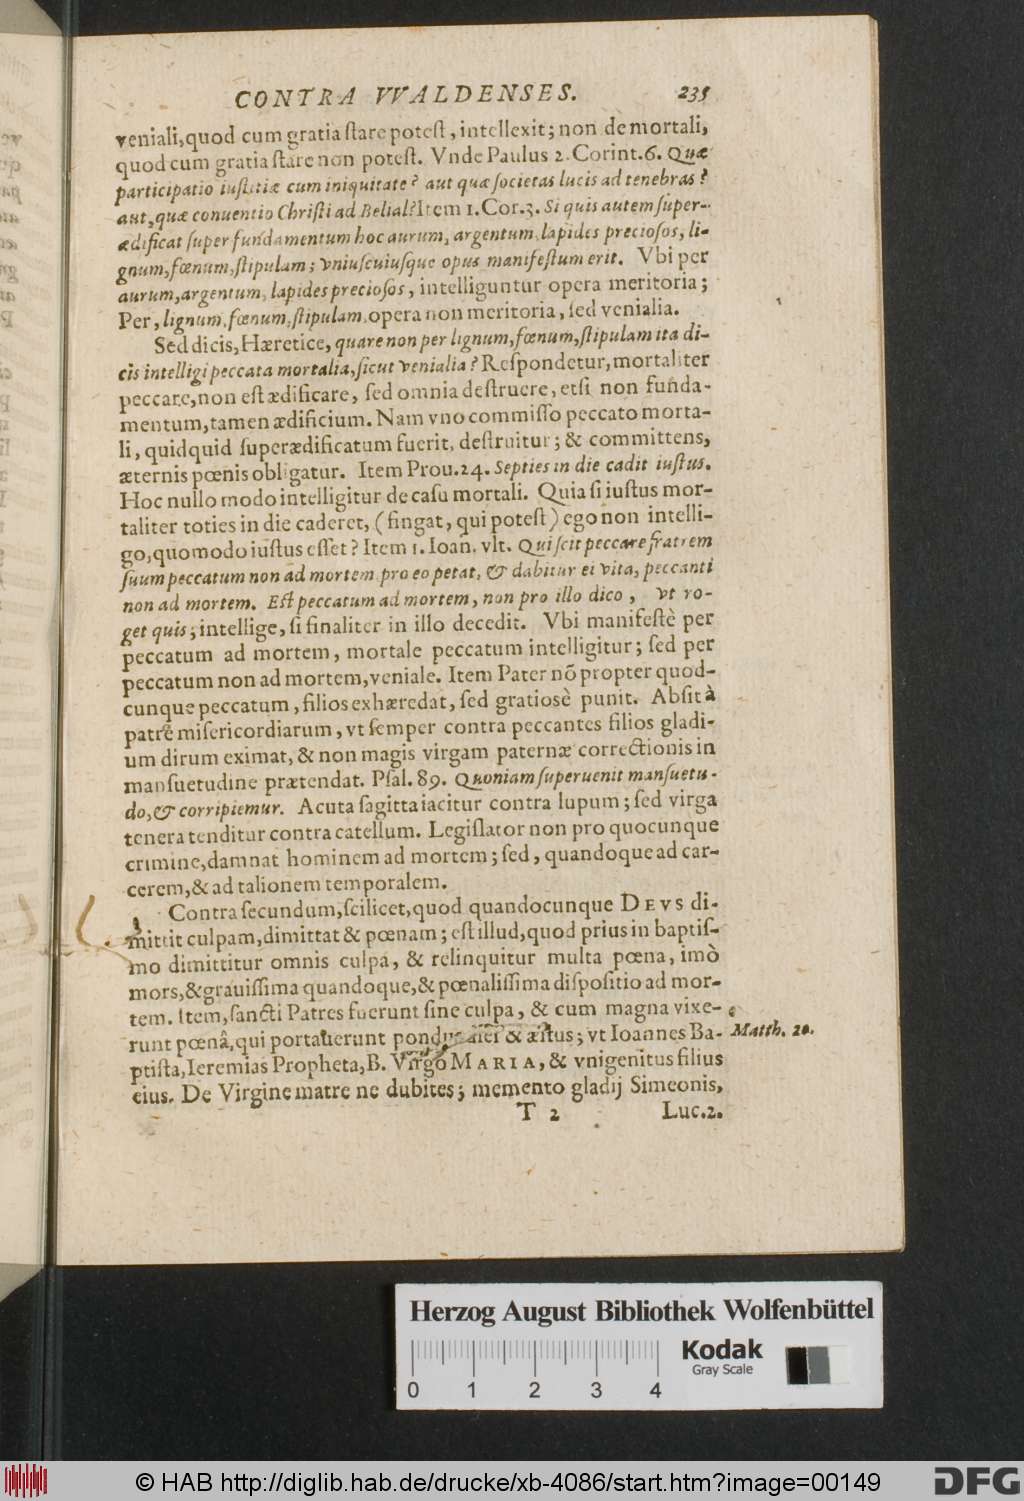 CONTRA VVALDENSES. 235
veniali,quod cum gratia ſtare poteſt, intellexit; non de mortali,
quod cum gratia ſtare non poteſt. Vnde Paulus 2. Corint.6. Quæ
participatio iuſtitiæ cum iniquitate? aut quæ ſocietas lucis ad tenebras?
aut, quæ conuentio Chriſti ad Belial? Item 1.Cor.3. Si quis autem ſuper-
ædificat ſuper fundamentum hoc aurum, argentum, lapides precioſos, li-
gnum, fœnum, ſtipulam; vniuſcuiuſque opus manifeſtum erit. Vbi per
aurum, argentum, lapides precioſos, intelliguntur opera meritoria;
Per, lignum, fœnum, ſtipulam, opera non meritoria, ſed venialia.
Sed dicis, Hæretice, quare non per lignum, fœnum, ſtipulam ita di-
cis intelligi peccata mortalia, ſicut venialia? Reſpondetur, mortaliter
peccare, non eſt ædificare, ſed omnia deſtruere, etſi non funda-
mentum, tamen ædificium. Nam vno commiſſo peccato morta-
li, quidquid ſuperædificatum fuerit, deſtruitur; & committens,
æternis pœnis obligatur. Item Prou.24. Septies in die cadit iuſtus.
Hoc nullo modo intelligitur de caſu mortali. Quia ſi iuſtus mor-
taliter toties in die caderet, (fingat, qui poteſt) ego non intelli-
go, quomodo iuſtus eſſet? Item 1. Ioan. vlt. Qui ſcit peccare fratrem
ſuum peccatum non ad mortem pro eo petat, & dabitur ei vita, peccanti
non ad mortem. Eſt peccatum ad mortem, non pro illo dico, vt ro-
get quis; intellige, ſi finaliter in illo decedit. Vbi manifeſtè per
peccatum ad mortem, mortale peccatum intelligitur; ſed per
peccatum non ad mortem, veniale. Item Pater nō propter quod-
cunque peccatum, filios exhæredat, ſed gratiosè punit. Abſit à
patrē miſericordiarum, vt ſemper contra peccantes filios gladi-
um dirum eximat, & non magis virgam paternæ correctionis in
manſuetudine prætendat. Pſal.89. Quoniam ſuperuenit manſuetu-
do, & corripiemur. Acuta ſagitta iacitur contra lupum; ſed virga
tenera tenditur contra catellum. Legiſlator non pro quocunque
crimine, damnat hominem ad mortem; ſed, quandoque ad car-
cerem, & ad talionem temporalem.
Contra ſecundum, ſcilicet, quod quandocunque DEVS di-
mittit culpam, dimittat & pœnam; eſt illud, quod prius in baptiſ-
mo dimittitur omnis culpa, & relinquitur multa pœna, imò
mors, & grauiſſima quandoque, & pœnaliſſima diſpoſitio ad mor-
tem. Item, ſancti Patres fuerunt ſine culpa, & cum magna vixe-
runt pœnâ, qui portauerunt pondus diei & æſtus; vt Ioannes Ba-
Matth. 20.
ptiſta, Ieremias Propheta, B. Virgo MARIA, & vnigenitus filius
eius. De Virgine matre ne dubites; memento gladij Simeonis,
T 2 Luc.2.
Herzog August Bibliothek Wolfenbüttel
Kodak
Gray Scale
0 1 2 3 4
© HAB http://diglib.hab.de/drucke/xb-4086/start.htm?image=00149
DFG